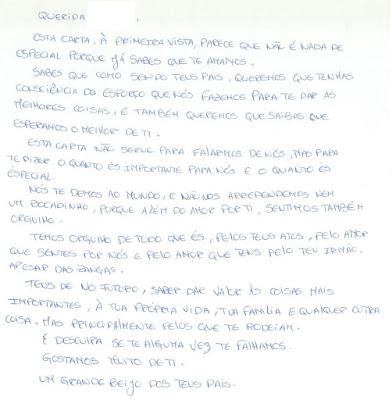 QUERIDA ,
ESTA CARTA, À PRIMEIRA VISTA, PARECE QUE NÃO É NADA DE
ESPECIAL PORQUE JÁ SABES QUE TE AMAMOS.
SABES QUE COMO SENDO TEUS PAIS, QUEREMOS QUE TENHAS
CONSCIÊNCIA DO ESFORÇO QUE NÓS FAZEMOS PARA TE DAR AS
MELHORES COISAS, E TAMBÉM QUEREMOS QUE SAIBAS QUE
ESPERAMOS O MELHOR DE TI.
ESTA CARTA NÃO SERVE PARA FALARMOS DE NÓS, MAS PARA
TE DIZER O QUANTO ÉS IMPORTANTE PARA NÓS E O QUANTO ÉS
ESPECIAL.
NÓS TE DEMOS AO MUNDO, E NÃO NOS ARREPENDEMOS NEM
UM BOCADINHO, PORQUE ALÉM DO AMOR POR TI, SENTIMOS TAMBÉM
ORGULHO.
TEMOS ORGULHO DE TUDO QUE ÉS, PELOS TEUS ATOS, PELO AMOR
QUE SENTES POR NÓS E PELO AMOR QUE TENS PELO TEU IRMÃO,
APESAR DAS ZANGAS.
TEUS DE NO FUTURO, SABER DAR VALOR ÀS COISAS MAIS
IMPORTANTES, À TUA PRÓPRIA VIDA, TUA FAMÍLIA E QUALQUER OUTRA
COISA. MAS PRINCIPALMENTE PELOS QUE TE RODEIAM.
E DESCULPA SE TE ALGUMA VEZ TE FALHAMOS.
GOSTAMOS MUITO DE TI.
UM GRANDE BEIJO DOS TEUS PAIS.